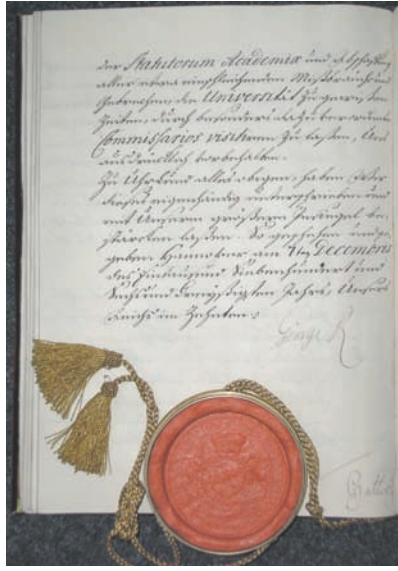 der Statutorum Academiæ und Abschaffung
aller etwa einschleichenden Misbräuche und
Gebrechen, die Universität zu gewissen
Zeiten, durch besonders dazu bevollmächtigte
Commissarios visitiren zu lassen, Uns
ausdrücklich vorbehalten.
Zu Uhrkund alles obigen haben Wir
dieses eigenhändig unterschrieben und
mit Unserm größern Insiegel be-
stärcken laßen. So geschehen und ge-
geben Hannover am 7ten Decembris
des Eintausend Siebenhundert und
Sechs und Dreyßigsten Jahrs, Unsers
Reichs im Zehnten.
George R.